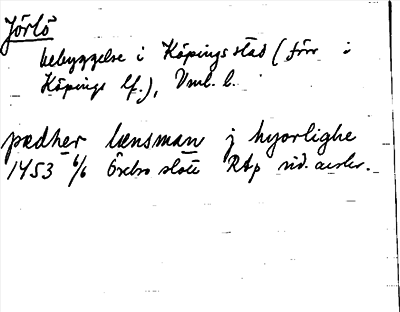 Jörlö
bebyggelse i Köpings stad (förr i
Köpings lf.), Vml. l.
pædher lænsman j hyorlighe
1453 6/6 Örebro slott RAp nid. avskr.